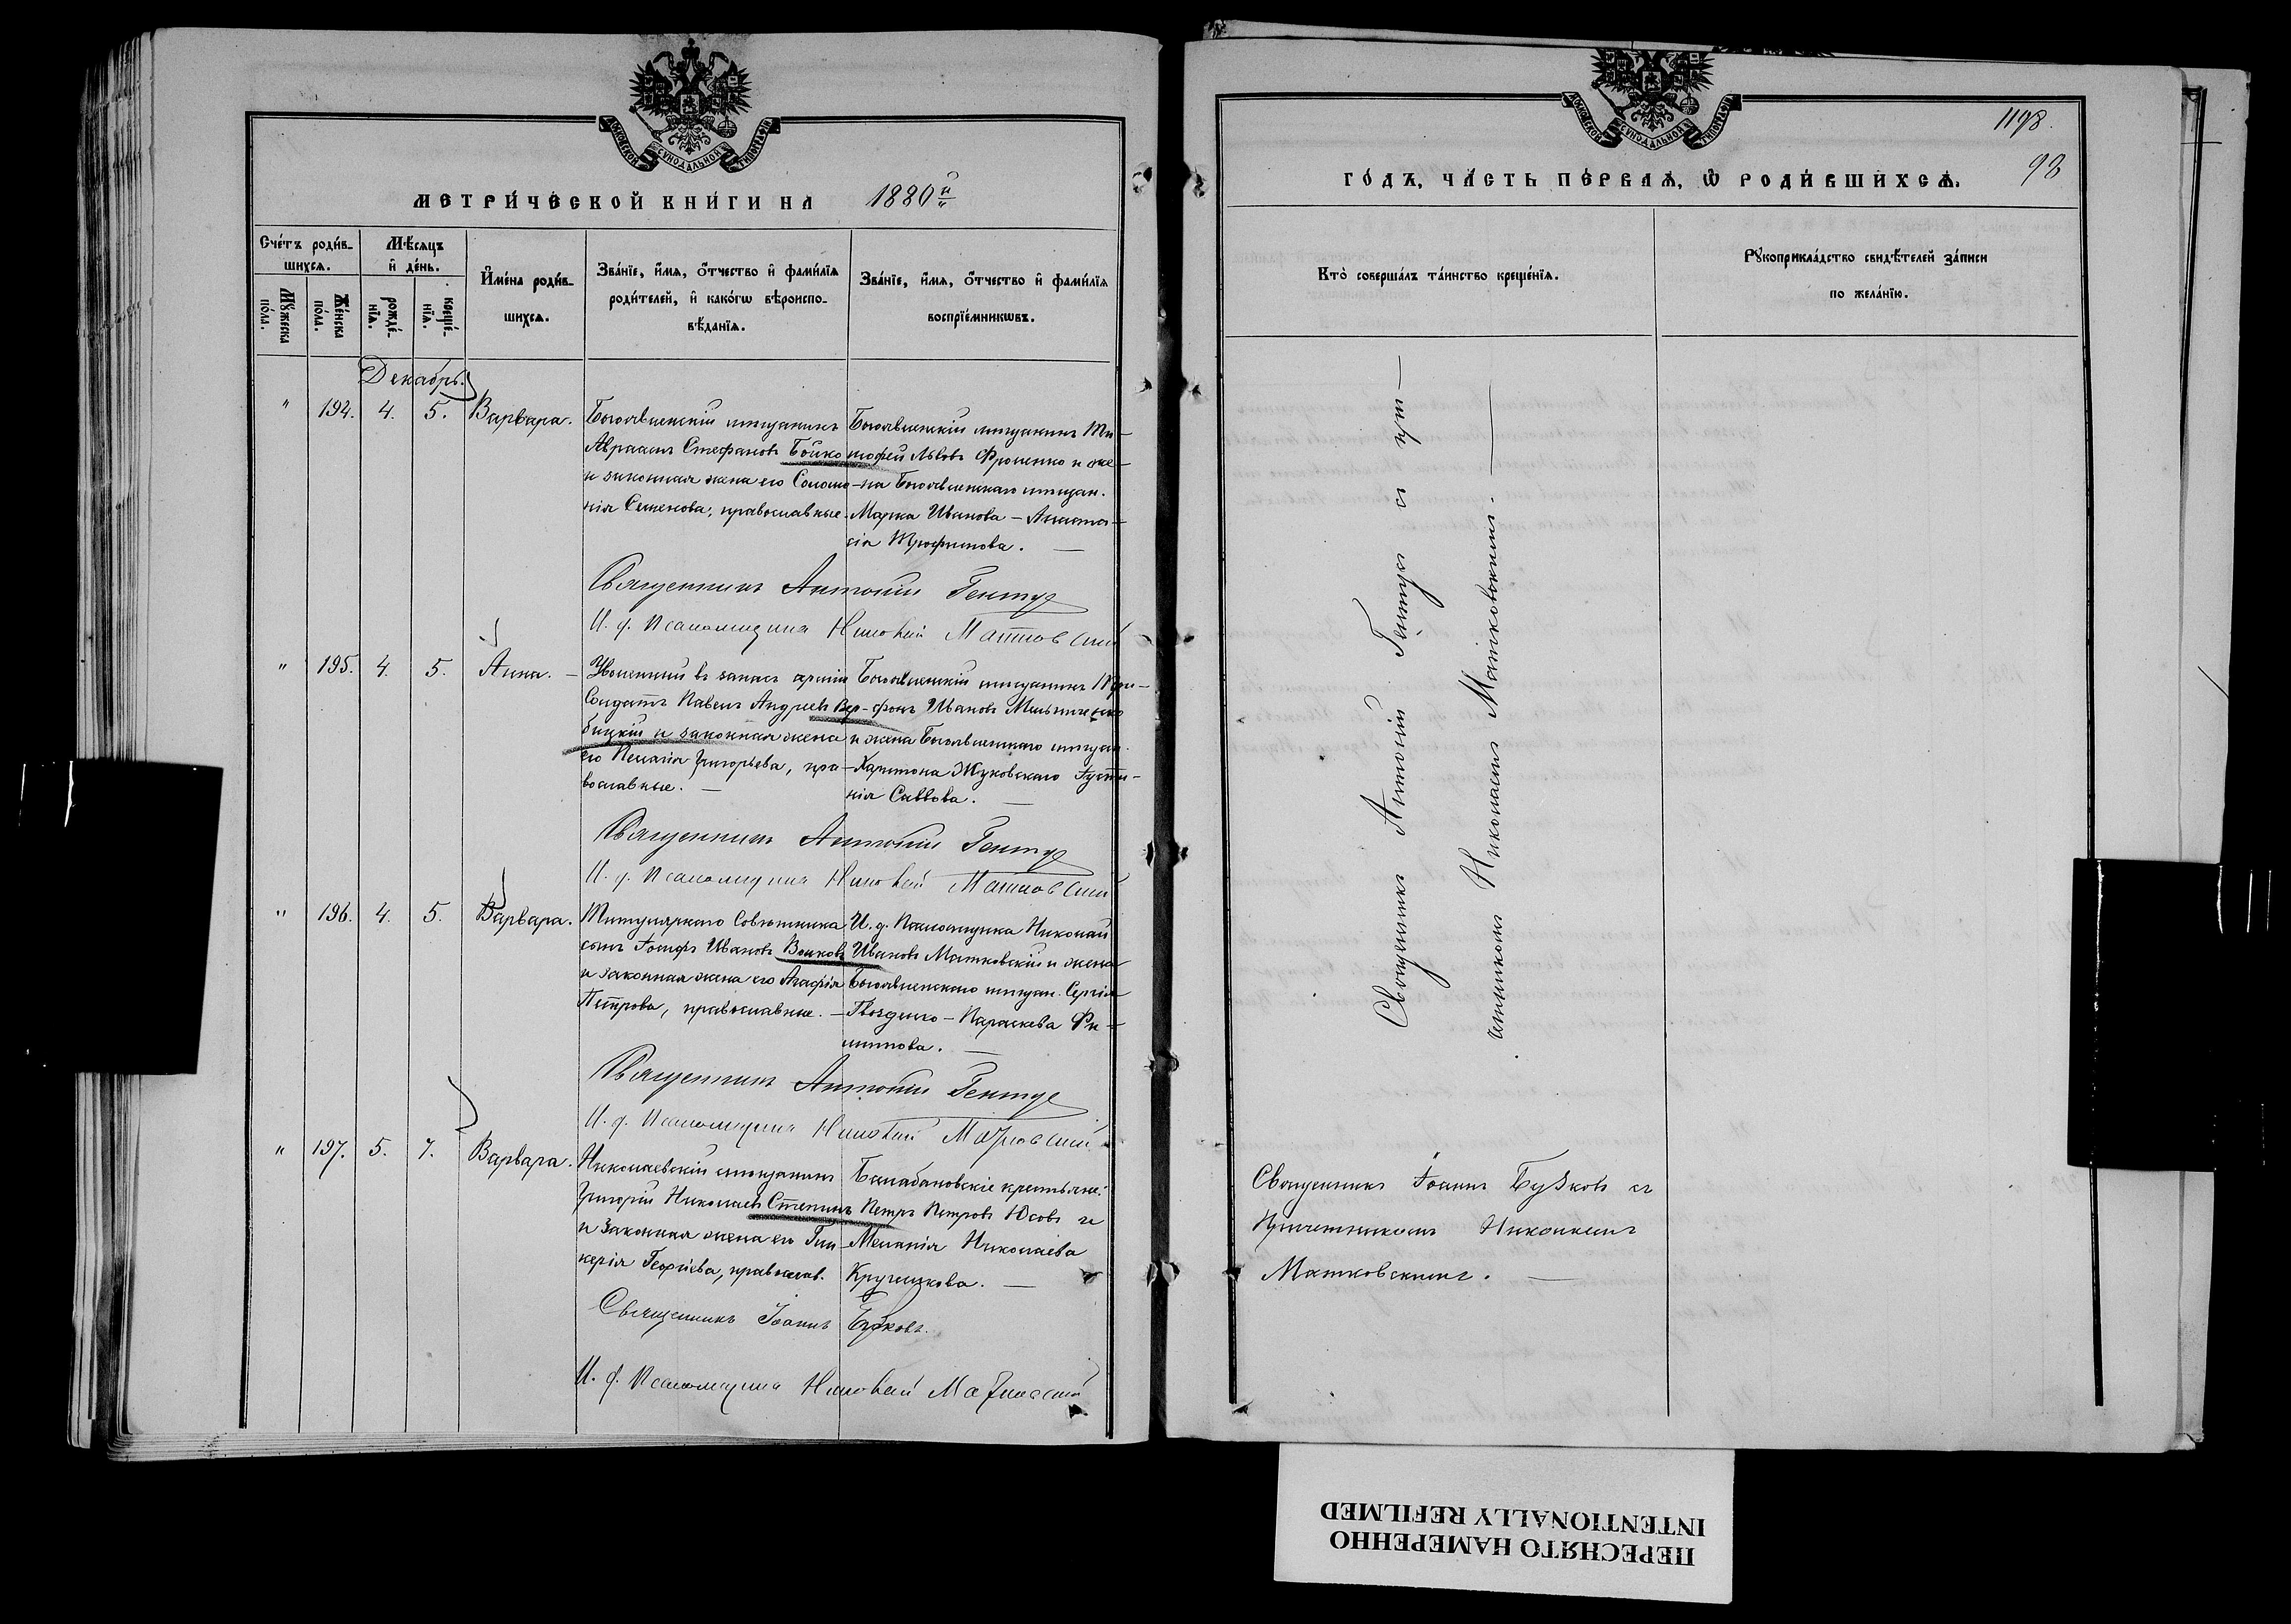 МОСКОВСКОЙ СѴНОДАЛЬНОЙ ТИПОГРАФІИ
МЕТРИ́ЧЕСКОЙ КНИ́ГИ НА 1880 й
Сче́тъ роди́в-
шихсѧ.
Мꙋ́жеска по́ла.
Же́нска по́ла.
Мѣ́сѧцъ
и҆ де́нь.
рожде́-
нїѧ.
креще́-
нїѧ.
И҆мена̀ роди́в-
шихсѧ.
Зва́нїе, и҆́мѧ, ѻ҆́тчество и҆ фами́лїѧ
роди́телей, и҆ како́гѡ вѣроиспо-
вѣ́данїѧ.
Зва́нїе, и҆́мѧ, ѻ҆́тчество и҆ фами́лїѧ
воспрїе́мникѡвъ.
Декабрь.
" 194. 4. 5. Варвара.
Богоявленскій мещанинъ
Авраамъ Стефановъ Бойко
и законная жена его Соломо-
нія Семенова, православные.
Богоявленскій мещанинъ Ти-
мофей Львовъ Фроменко и же-
на Богоявленскаго мещан.
Марка Иванова - Анаста-
сія Трофимова.
Священникъ Антоній Гентуе
И. д. Псаломщика Николай Матковскій
" 195. 4. 5. Анна.
Уволенный въ запасъ арміи
Солдатъ Павелъ Андреевъ Вер-
бицкій и законная жена
его Пелагія Григорьева, пра-
вославные.
Богоявленскій мещанинъ Три-
фонъ Ивановъ Мельниченко
и жена Богоявленскаго мещан.
Харитона Жуковскаго Іусти-
нія Саввова.
Священникъ Антоній Гентуе
И. д. Псаломщика Николай Матковскій
" 196. 4. 5. Варвара.
Титулярнаго Совѣтника
сынъ Іосифъ Ивановъ Волковъ
и законная жена его Агафія
Петрова, православные.
И. д. Псаломщика Николай
Ивановъ Матковскій и жена
Богоявленскаго мещан. Сергія
Гвозденко - Параскева Фи-
липпова.
Священникъ Антоній Гентуе
И. д. Псаломщика Николай Матковскій
" 197. 5. 7. Варвара.
Николаевскій мещанинъ
Григорій Николаевъ Степинъ
и законная жена его Гли-
керія Георгіева, православ.
Балабановскіе крестьяне:
Петръ Петровъ Юсовъ и
Меланія Николаева
Кручинкова.
Священникъ Іоаннъ Бутковъ.
И. д. Псаломщика Николай Матковскій
МОСКОВСКОЙ СѴНОДАЛЬНОЙ ТИПОГРАФІИ
1198.
98
ГО́ДЪ, ЧА́СТЬ ПЕ́РВАѦ, Ѡ҆ РОДИ́ВШИХСѦ.
Кто̀ соверша́лъ та́инство креще́нїѧ.
Рꙋкоприкла́дство свидѣ́телей за́писи
по жела́нїю.
Священникъ Антоній Гентуе съ при-
четникомъ Николаемъ Матковскимъ.
Священникъ Іоаннъ Бутковъ съ
Причетникомъ Николаемъ
Матковскимъ.
ПЕРЕСНЯТО НАМЕРЕННО
INTENTIONALLY REFILMED